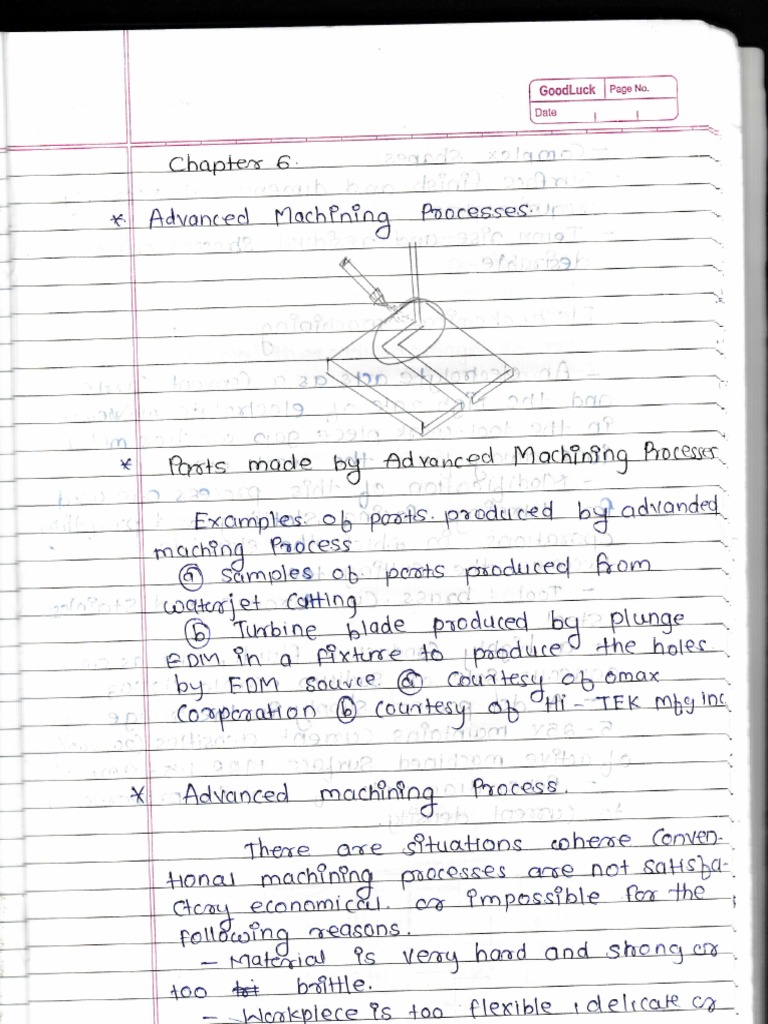 GoodLuck Page No.
Date
Chapter 6.
* Advanced Machining Processes.
* Parts made by Advanced Machining Processes
Examples of parts produced by advanded
maching Process
(a) Samples of parts produced from
waterjet cutting
(b) Turbine blade produced by plunge
EDM in a fixture to produce the holes
by EDM source (a) courtesy of omax
Corporation (b) courtesy of Hi-TEK Mfg inc
* Advanced machining Process.
There are situations where Conven-
tional machining processes are not satisfa-
ctory economical or impossible for the
following reasons.
- Material is very hard and strong or
too brittle.
- Workpiece is too flexible, delicate or